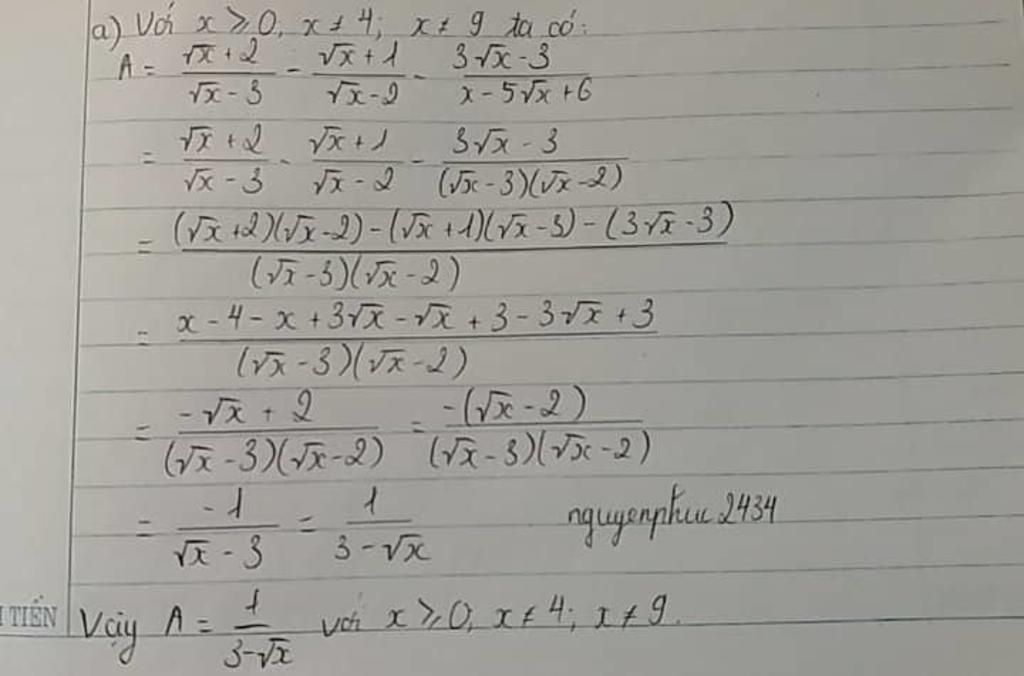 a) Với x ⩾ 0, x ≠ 4; x ≠ 9 ta có:
A = (√x + 2)/(√x - 3) - (√x + 1)/(√x - 2) - (3√x - 3)/(x - 5√x + 6)
= (√x + 2)/(√x - 3) - (√x + 1)/(√x - 2) - (3√x - 3)/((√x - 3)(√x - 2))
= ((√x + 2)(√x - 2) - (√x + 1)(√x - 3) - (3√x - 3))/((√x - 3)(√x - 2))
= (x - 4 - x + 3√x - √x + 3 - 3√x + 3)/((√x - 3)(√x - 2))
= (-√x + 2)/((√x - 3)(√x - 2)) = (-(√x - 2))/((√x - 3)(√x - 2))
= (-1)/(√x - 3) = 1/(3 - √x) nguyenphuc2434
TIẾN Vậy A = 1/(3 - √x) với x ⩾ 0, x ≠ 4; x ≠ 9.